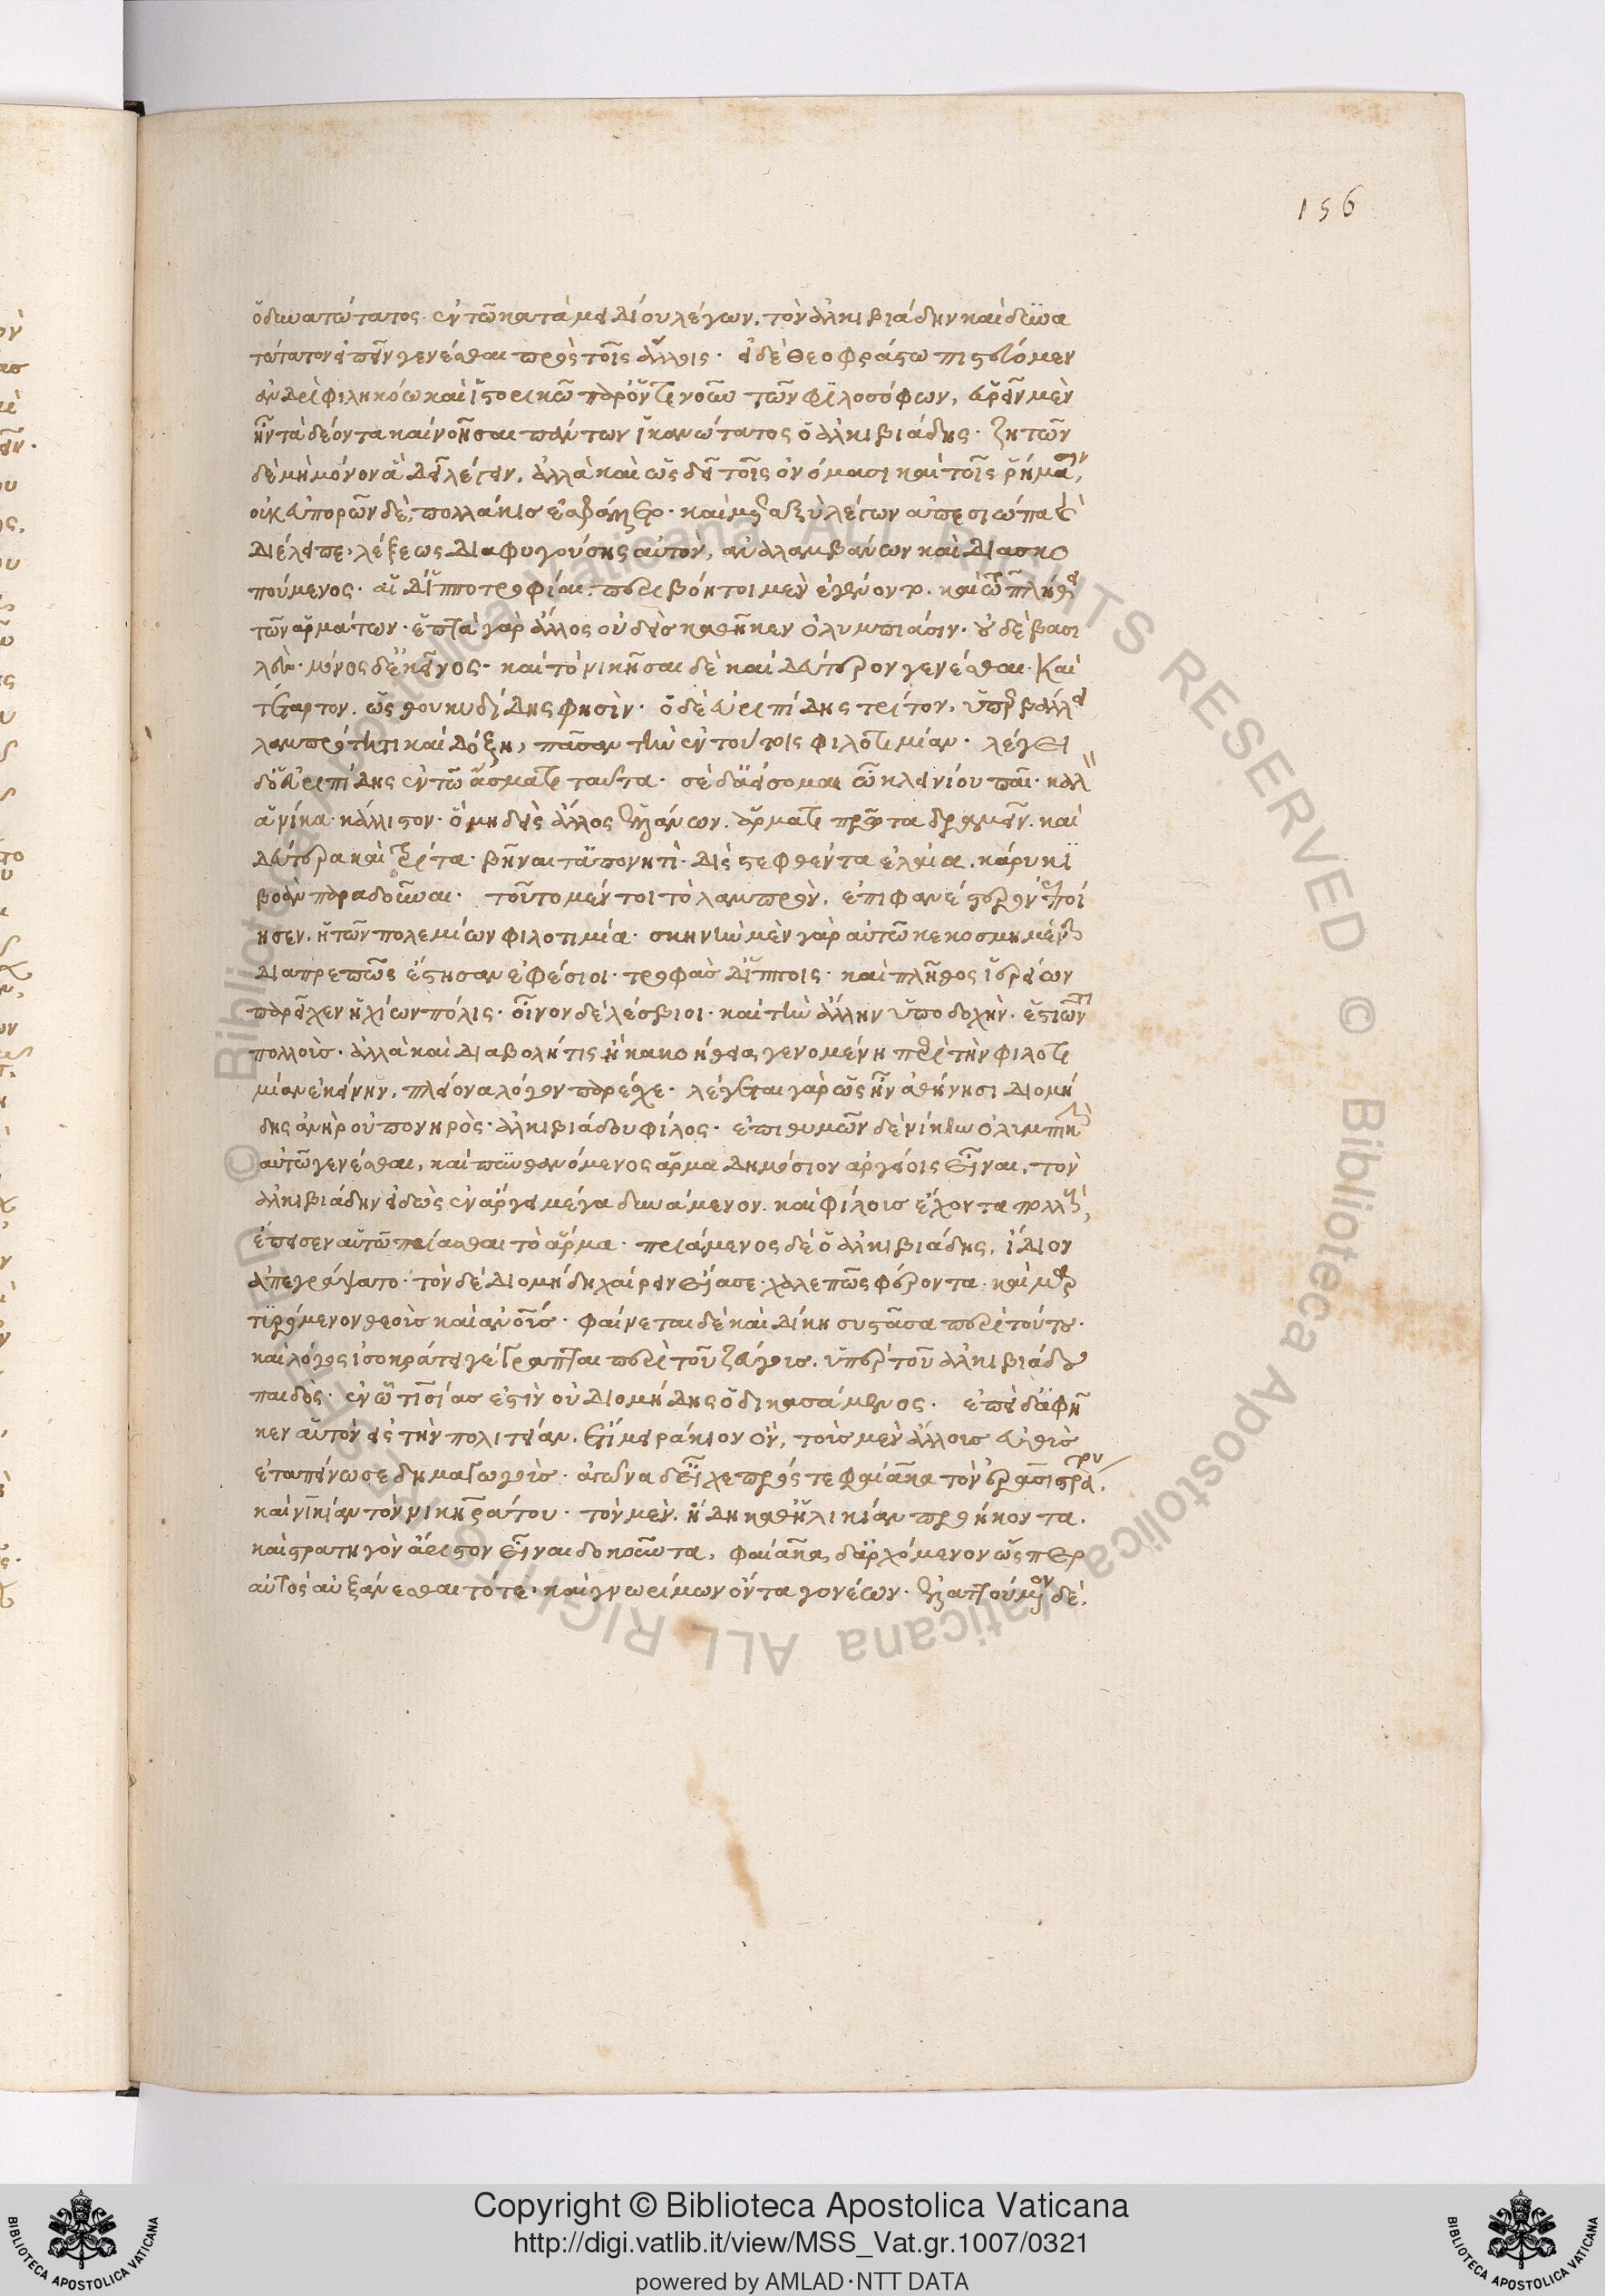 ὁ δυνατώτατος ἐν τῶ κατὰ μειδίου λέγων, τὸν ἀλκιβιάδην καὶ δυνα
τώτατον εἰπεῖν γενέσθαι πρὸς τοῖς ἄλλοις. εἰ δὲ θεοφράστω πιστεύομεν
ἀνδρὶ φιληκόω καὶ ἱστορικῶ παρ' ὁντινοῦν τῶν φιλοσόφων, εὑρεῖν μὲν
ἦν τὰ δέοντα καὶ νοῆσαι πάντων ἱκανώτατος ὁ ἀλκιβιάδης. ζητῶν
δὲ μὴ μόνον ἃ δεῖ λέγειν, ἀλλὰ καὶ ὡς δεῖ τοῖς ὀνόμασι καὶ τοῖς ῥήμασιν,
οὐκ εὐπορῶν δὲ, πολλάκις ἐσφάλλετο. καὶ μεταξὺ λέγων ἀπεσιώπα καὶ
διέλειπε, λέξεως διαφυγούσης αὐτὸν, ἀναλαμβάνων καὶ διασκο
πούμενος. αἱ δ' ἱπποτροφίαι, περιβόητοι μὲν ἐγένοντο. καὶ τῶ πλήθει
τῶν ἁρμάτων. ἑπτὰ γὰρ ἄλλος οὐδεὶς καθῆκεν ὀλυμπιάσιν. οὐδὲ βασι
λεύς. μόνος δὲ ἐκεῖνος. καὶ τὸ νικῆσαι δὲ καὶ δεύτερον γενέσθαι. καὶ
τέταρτον. ὡς θουκυδίδης φησὶν. ὁ δὲ εὐριπίδης τρίτον, ὑπερβάλλει
λαμπρότητι καὶ δόξη, πᾶσαν τὴν ἐν τούτοις φιλοτιμίαν. λέγει
δ' ὁ εὐριπίδης ἐν τῶ ἄσματι ταῦτα. σὲ δ' ἀείσομαι ὦ κλεινίου παῖ. καλ
ἁ νίκα. κάλλιστον. ὃ μηδεὶς ἄλλος ἑλλάνων. ἅρματι πρῶτα δραμεῖν. καὶ
δεύτερα καὶ τρίτα. βῆναι τ' ἀπονητὶ. δὶς στεφθέντα ἐλαία. κάρυκι
βοᾶν παραδοῦναι. τοῦτο μέντοι τὸ λαμπρὸν, ἐπιφανέστερον ἐποί
ησεν. ἡ τῶν πολεμίων φιλοτιμία. σκηνὴν μὲν γὰρ αὐτῶ κεκοσμημένην
διαπρεπῶς ἔστησαν ἐφέσιοι. τροφὰς δ' ἵπποις. καὶ πλῆθος ἱερείων
παρεῖχεν ἡ χίων πόλις. οἶνον δὲ λέσβιοι. καὶ τὴν ἄλλην ὑποδοχὴν. ἑστιῶντι
πολλοὺς. ἀλλὰ καὶ διαβολή τις ἢ κακοήθεια γενομένη περὶ τὴν φιλοτι
μίαν ἐκείνην, πλείονα λόγον παρέσχε. λέγεται γὰρ ὡς ἦν ἀθήνησι διομή
δης ἀνὴρ οὐ πονηρὸς. ἀλκιβιάδου φίλος. ἐπιθυμῶν δὲ νίκην ὀλυμπικὴν
αὐτῶ γενέσθαι, καὶ πυνθανόμενος ἅρμα δημόσιον ἀργείοις εἶναι, τὸν
ἀλκιβιάδην εἰδὼς ἐν ἄργει μέγα δυνάμενον. καὶ φίλους ἔχοντα πολλοὺς,
ἔπεισεν αὐτῶ πρίασθαι τὸ ἅρμα. πριάμενος δὲ ὁ ἀλκιβιάδης, ἴδιον
ἀπεγράψατο. τὸν δὲ διομήδη χαίρειν εἴασε. χαλεπῶς φέροντα. καὶ μαρ
τυρόμενον θεοὺς καὶ ἀνους. φαίνεται δὲ καὶ δίκη συστᾶσα περὶ τούτου.
καὶ λόγος ἰσοκράτει γέγραπται περὶ τοῦ ζεύγους. ὑπὲρ τοῦ ἀλκιβιάδου
παιδὸς. ἐν ὧ τισίας ἐστὶν οὐ διομήδης ὁ δικασάμενος. ἐπεὶ δ' ἀφῆ
κεν αὑτὸν εἰς τὴν πολιτείαν. ἔτι μειράκιον ὢν, τοὺς μὲν ἄλλους εὐθὺς
ἐταπείνωσε δημαγωγοὺς. ἀγῶνα δ' εἶχε πρός τε φαίακα τὸν ἐρασιστράτου,
καὶ νικίαν τὸν νικηράτου. τὸν μὲν. ἤδη καθ' ἡλικίαν προήκοντα.
καὶ στρατηγὸν ἄριστον εἶναι δοκοῦντα, φαίακα, δ' ἀρχόμενον ὥσπερ
αὐτὸς αὐξάνεσθαι τότε. καὶ γνωρίμων ὄντα γονέων. ἐλαττούμενον δὲ.
156
Copyright © Biblioteca Apostolica Vaticana
http://digi.vatlib.it/view/MSS_Vat.gr.1007/0321
powered by AMLAD·NTT DATA